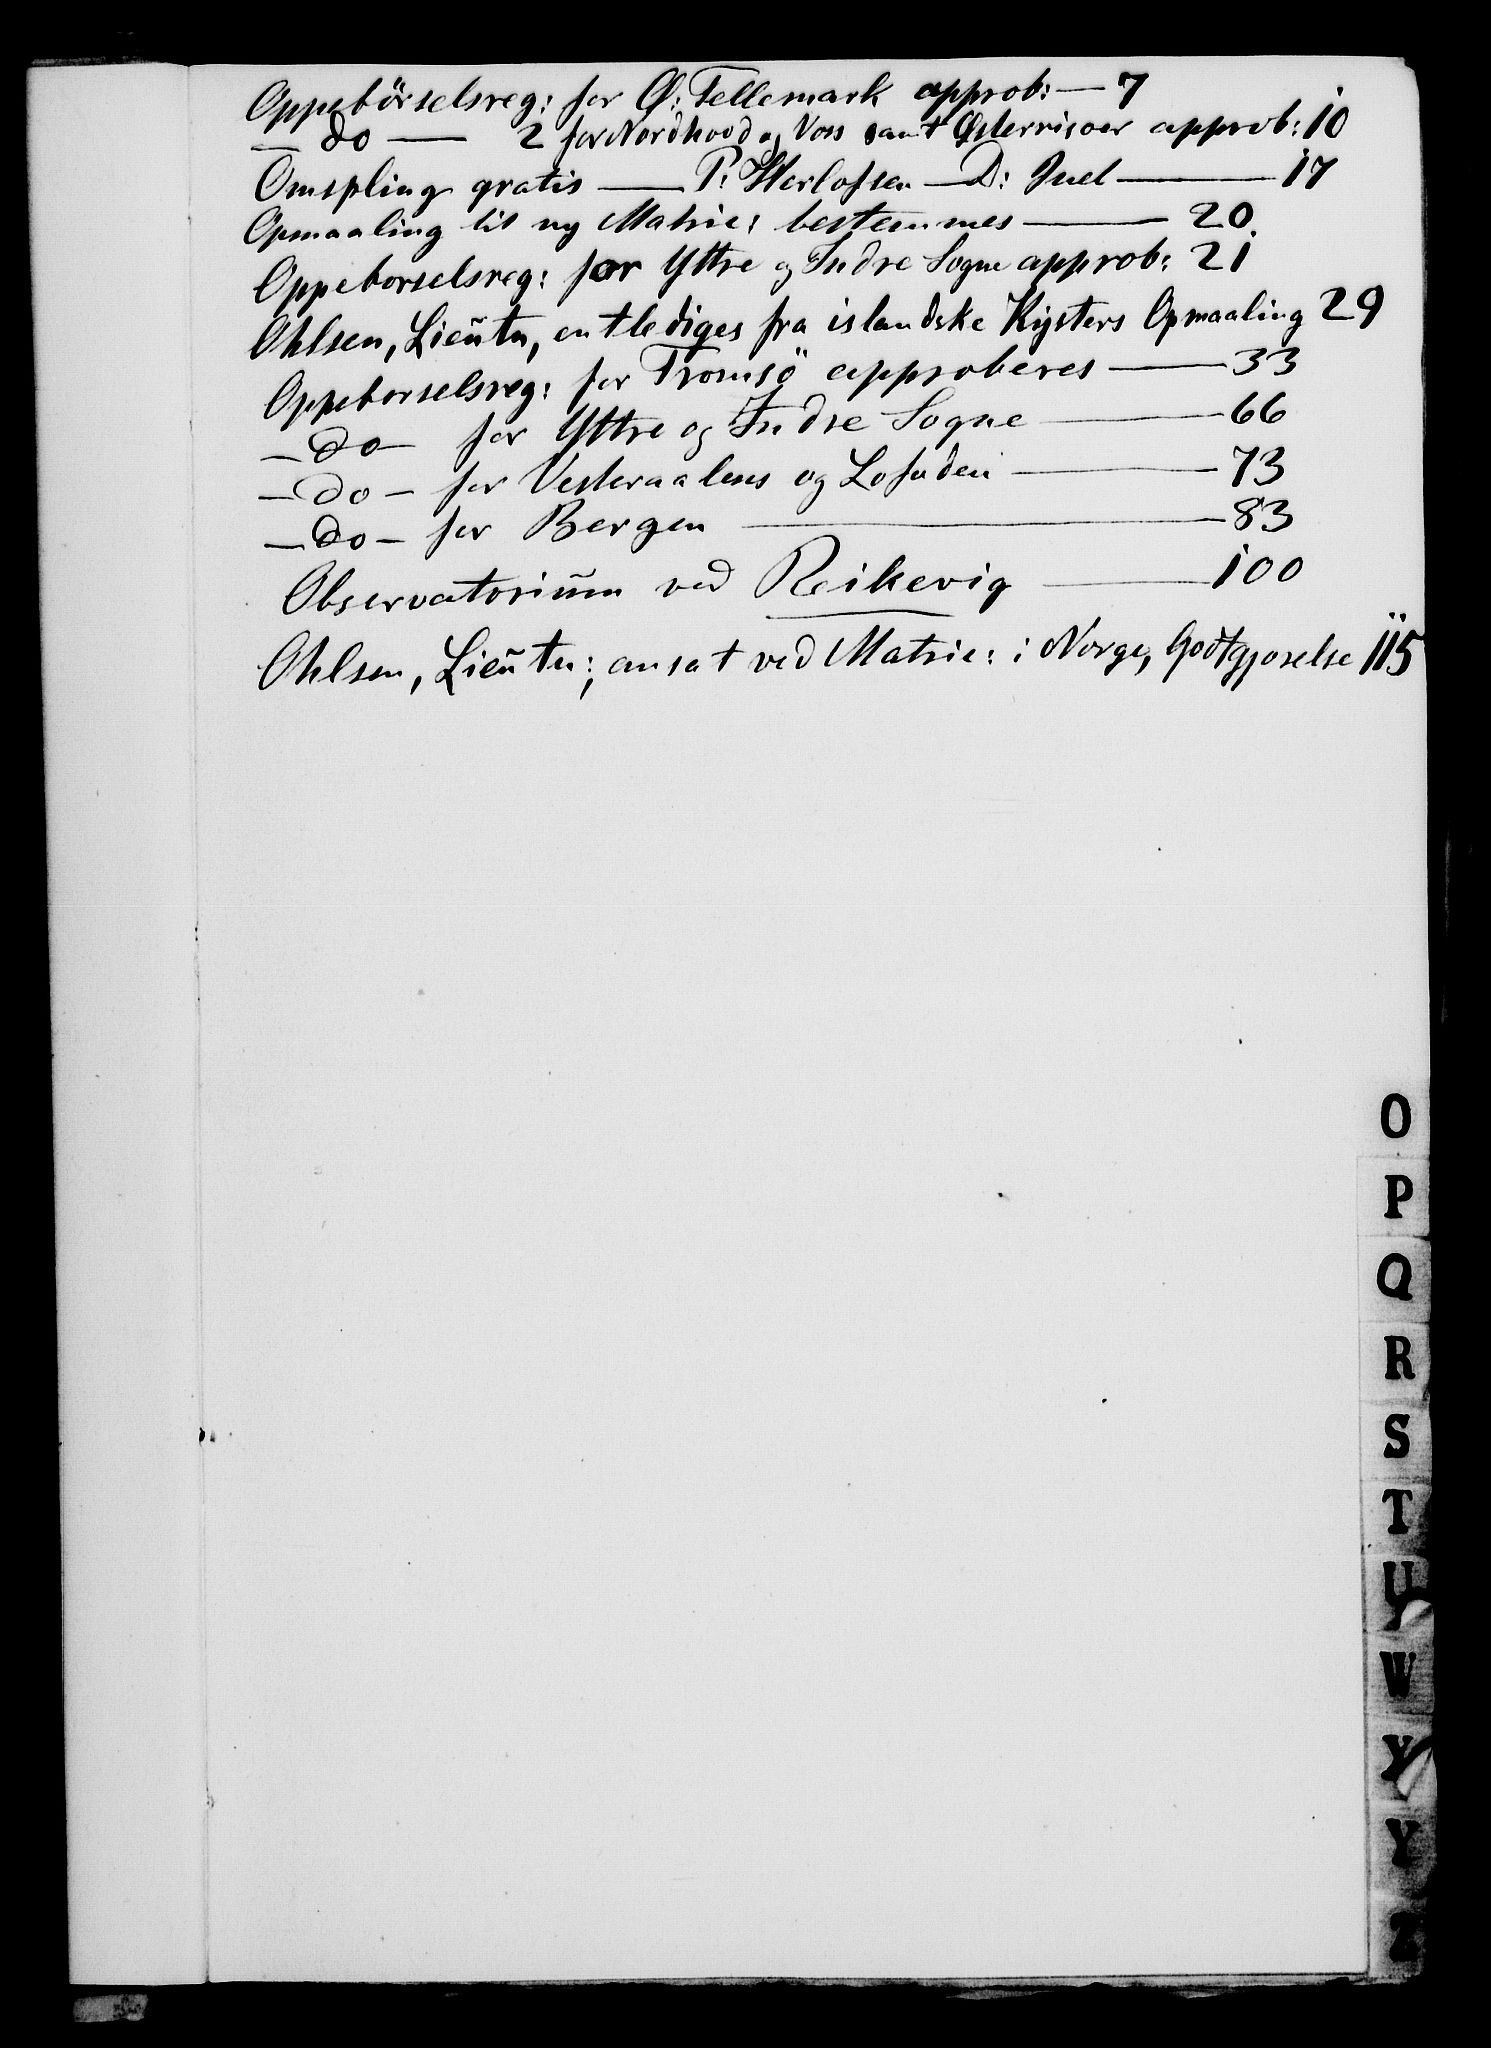 Oppebörselsreg: for Ø: Tellemark approb: — 7
— do — 2 for Nordhord og Voss samt Østerrisoer approb: 10
Omspling gratis — P: Herlofsen — D: Juel — 17
Opmaaling til ny Matric: bestemmes — 20.
Oppeborselsreg: for Yttre og Indre Sogne approb: 21
Ohlsen, Lieutn, entlediges fra islandske Kysters Opmaaling 29
Oppeborselsreg: for Tromsö approberes — 33
— do — for Yttre og Indre Sogne — 66
— do — for Vesteraalens og Lofoden — 73
— do — for Bergen — 83
Observatorium ved Reikevig — 100
Ohlsen, Lieutn:, ansat ved Matric: i Norge, Godtgjorelse 115
O
P
Q
R
S
T
U
W
Y
Y
Z